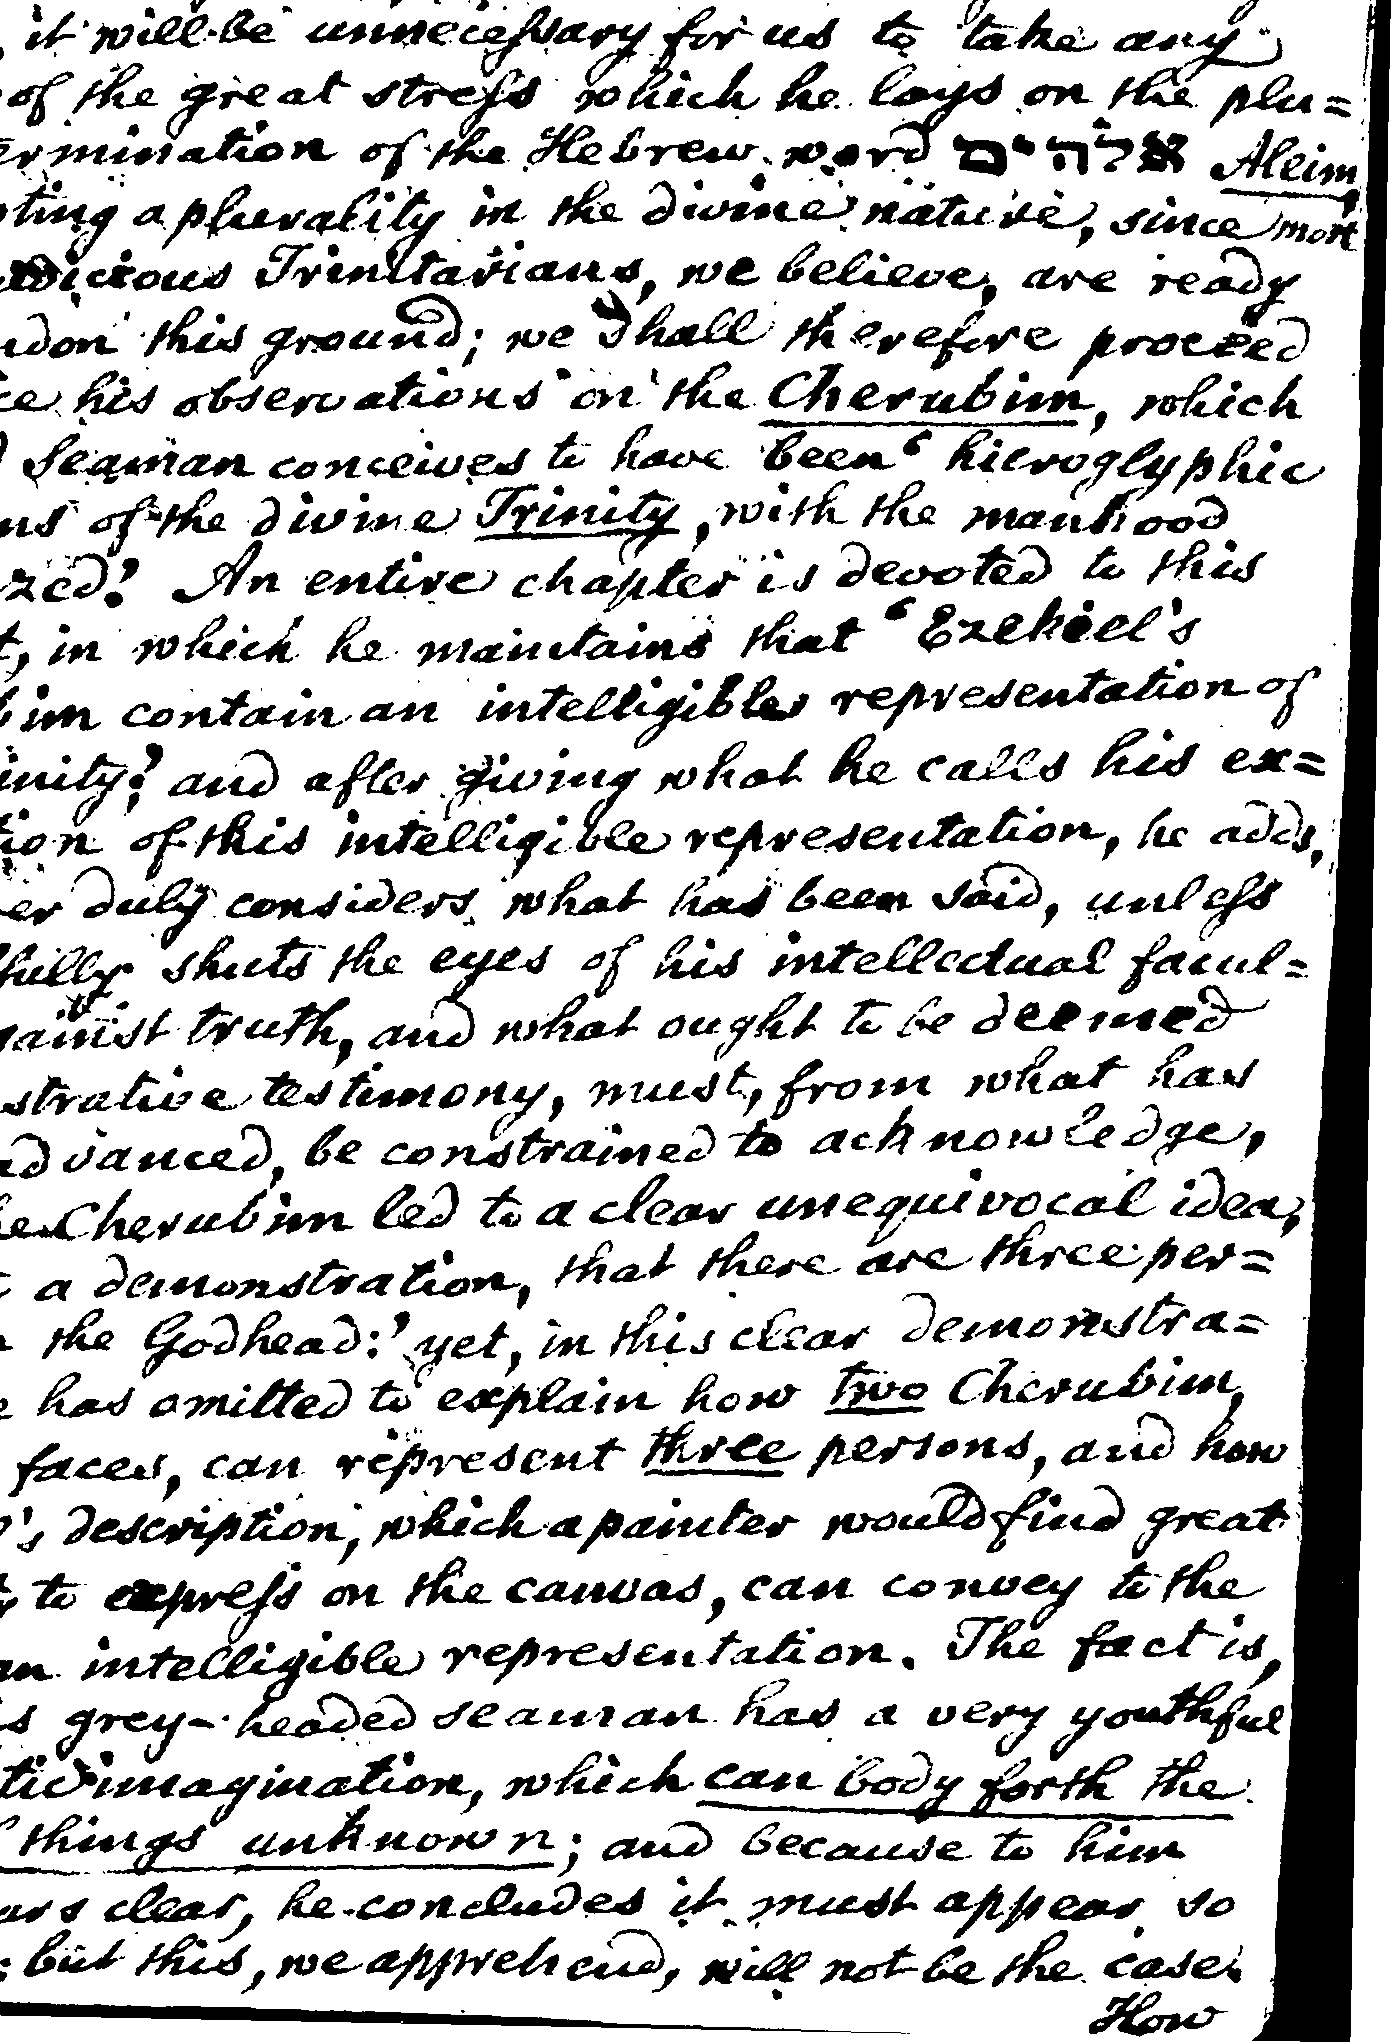 it will be unnecessary for us to take any
of the great stress which he lays on the plu=
ermination of the Hebrew word אלהים Aleim,
ting a plurality in the divine nature, since most
dicious Trinitarians, we believe, are ready
ndon this ground; we shall therefore proceed
ce his observations on the Cherubim, which
Seaman conceives to have been ‘hieroglyphic
ns of the divine Trinity, with the manhood
zed.’ An entire chapter is devoted to this
t, in which he maintains that ‘Ezekiel's
bim contain an intelligible representation of
inity;’ and after giving what he calls his ex=
ion of this intelligible representation, he adds,
er duly considers what has been said, unless
fully shuts the eyes of his intellectual facul=
gainst truth, and what ought to be deemed
strative testimony, must, from what has
advanced, be constrained to acknowledge,
he Cherubim led to a clear unequivocal idea,
t a demonstration, that there are three per=
n the Godhead:’ yet, in this clear demonstra=
e has omitted to explain how two Cherubim,
faces, can represent three persons, and how
's description, which a painter would find great
y to express on the canvas, can convey to the
an intelligible representation. The fact is,
s grey-headed seaman has a very youthful
tic imagination, which can body forth the
things unknown; and because to him
ars clear, he concludes it must appear so
: but this, we apprehend, will not be the case.
How